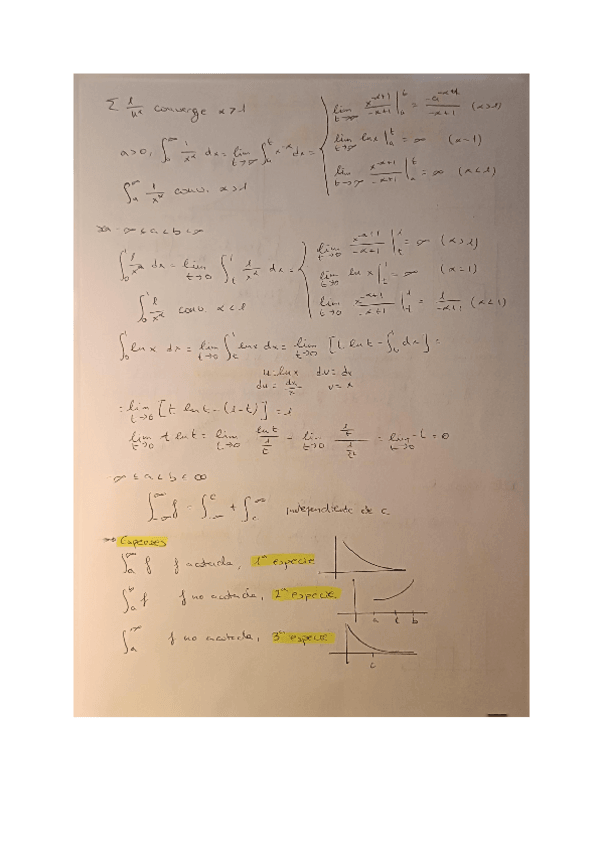 Σ 1/n^α converge α>1
a>0, ∫_a^∞ 1/x^α dx = lim_{t→∞} ∫_a^t x^-α dx =
lim_{t→∞} x^{-α+1}/(-α+1) |_a^t = -a^{-α+1}/(-α+1) (α>1)
lim_{t→∞} ln x |_a^t = ∞ (α=1)
lim_{t→∞} x^{-α+1}/(-α+1) |_a^t = ∞ (α<1)
∫_a^∞ 1/x^α conv. α>1
-∞ ≤ a < b < ∞
∫_0^1 1/x^α dx = lim_{t→0} ∫_t^1 1/x^α dx =
lim_{t→0} x^{-α+1}/(-α+1) |_t^1 = ∞ (α>1)
lim_{t→0} ln x |_t^1 = ∞ (α=1)
lim_{t→0} x^{-α+1}/(-α+1) |_t^1 = 1/(-α+1) (α<1)
∫_0^1 1/x^α conv α<1
∫_0^1 ln x dx = lim_{t→0} ∫_t^1 ln x dx = lim_{t→0} [t ln t - ∫_t^1 dx] =
u=ln x dv=dx
du=dx/x v=x
= lim_{t→0} [t ln t - (1-t)] = 1
lim_{t→0} t ln t = lim_{t→0} ln t / (1/t) = lim_{t→0} (1/t) / (1/t²) = lim_{t→0} -t = 0
∞ ≤ a < b < ∞
∫_{-∞}^∞ f = ∫_{-∞}^c + ∫_c^∞ independiente de c
→ Especies
∫_a^∞ f f acotada, 1ª especie
∫_a^b f f no acotada, 2ª especie
a t b
∫_a^∞ f no acotada, 3ª especie
c